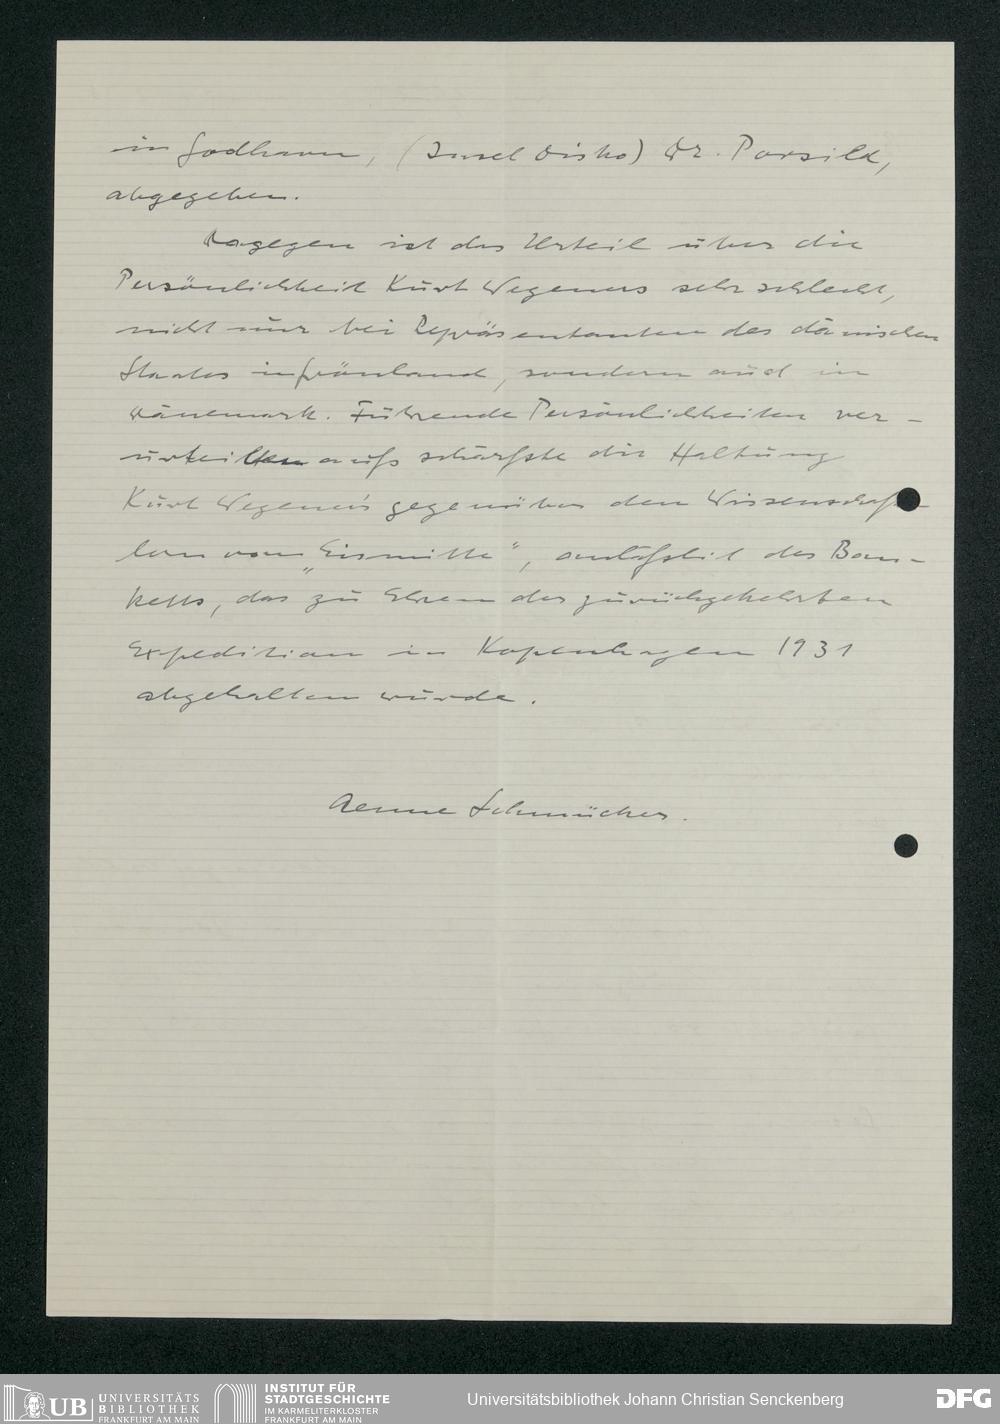 in Godhavn, (Insel Disko) Dr. Porsild,
abgegeben.
Dagegen ist das Urteil über die
Persönlichkeit Kurt Wegeners sehr schlecht,
nicht nur bei Repräsentanten des dänischen
Staates in Grönland, sondern auch in
Dänemark. Führende Persönlichkeiten ver-
urteilten aufs schärfste die Haltung
Kurt Wegener's gegenüber den Wissenschaft-
lern von „Eismitte“, anläßlich des Ban-
ketts, das zu Ehren der zurückgekehrten
Expedition in Kopenhagen 1931
abgehalten wurde.
Aenne Schmücker.
UB UNIVERSITÄTS
BIBLIOTHEK
FRANKFURT AM MAIN
INSTITUT FÜR
STADTGESCHICHTE
IM KARMELITERKLOSTER
FRANKFURT AM MAIN
Universitätsbibliothek Johann Christian Senckenberg
DFG